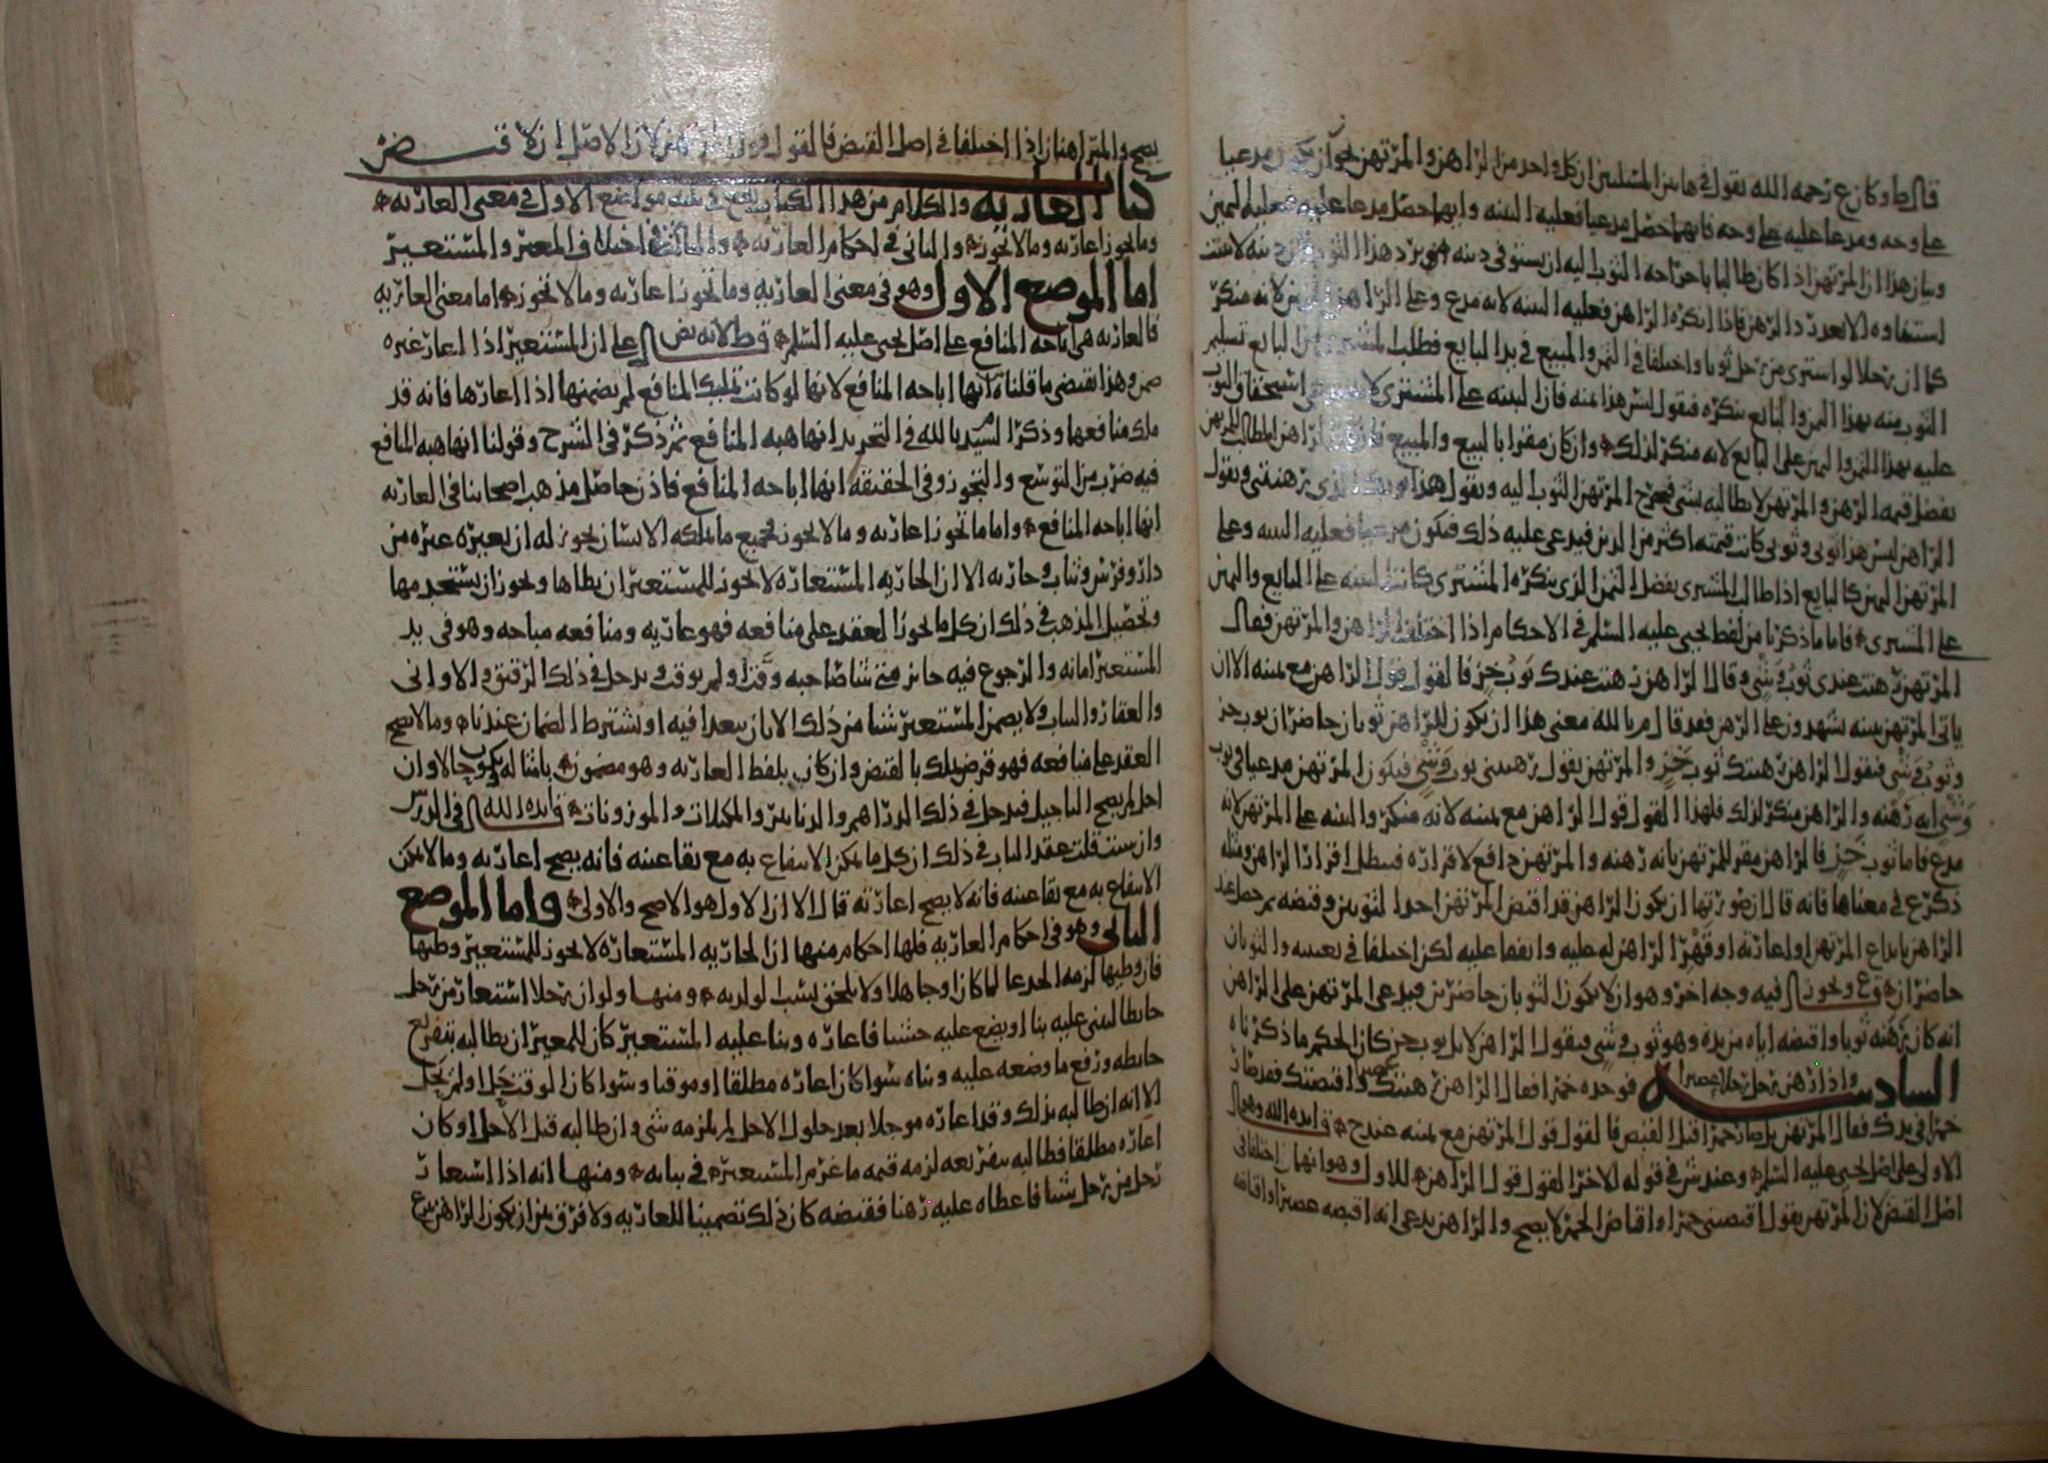 قال ط وكان ع رحمه الله يقول في هاتين المسلتين ان كل واحد من الراهن والمرتهن يجوز ان يكون مدعيا
على وجه ومدعا عليه على وجه فايهما حصل مدعيا فعليه البينه وايهما حصل مدعا عليه فعليه اليمين
وبيان هذا ان المرتهن اذا كان طالبا باخراجه الثوب اليه ان يستوفى دينه هذا الثوب
استيفاوه الا بعد رد الرهن فاذا انكره الراهن فعليه البينه لانه مدع وعلى الراهن اليمين لانه منكر
كما ان رجلا لو اشترى من رجل ثوبا واختلفا في الثمن والمبيع في يد البايع فطلب المشتري من البايع تسليم
الثوب منه بهذا الثمن والبايع ينكره فيقول ليس هذا منه فان البينه على المشتري استحقاق الثوب
عليه بهذا الثمن واليمين على البايع لانه منكر لذلك وان كان مقرا بالبيع والمبيع الراهن
بفضل قيمه الرهن والمرتهن لا يطالبه بشي فيخرج المرتهن الثوب اليه ويقول هذا ثوبك الذي رهنتني ويقول
الراهن ليس هذا ثوبي وثوبي كانت قيمته اكثر من الدين فيدعي عليه ذلك فيكون مدعيا فعليه البينه وعلى
المرتهن اليمين كالبايع اذا طالب المشتري بفضل الثمن الذي ينكره المشتري كانت البينه على البايع واليمين
على المشتري فاما ما ذكرنا من لفظ يحيى عليه السلم في الاحكام اذا اختلف الراهن والمرتهن فقال
المرتهن رهنت عندى ثوب وشي وقال الراهن رهنت عندك ثوب خز فالقول قول الراهن مع يمينه الا ان
ياتي المرتهن ببينه يشهدون على الرهن فقد قال م بالله معنى هذا ان يكون للراهن ثوبان حاضران ثوب خز
وثوب وشي فيقول الراهن رهنتك ثوب خز والمرتهن يقول رهنتني ثوب وشي فيكون المرتهن مدعيا في ثوب
وشي انه رهنه والراهن منكر لذلك فلهذا القول قول الراهن مع يمينه لانه منكر والبينه على المرتهن لانه
مدع فاما ثوب خز فالراهن مقر للمرتهن بانه رهنه والمرتهن دافع لاقراره فبطل اقرار الراهن ومثله
ذكر ع في معناها فانه قال ان صورتها ان يكون الراهن قد اقبض المرتهن احد الثوبين وقبضه ثم حصل عند
الراهن بايداع المرتهن او اعارته او قهر الراهن له عليه واتفقا عليه لكن اختلفا في تعيينه والثوبان
حاضران ع ويجوز فيه وجه اخر وهو ان لا يكون الثوبان حاضرين فيدعي المرتهن على الراهن
انه كان رهنه ثوبا واقبضه اياه من يده وهو ثوب وشي فيقول الراهن لا بل ثوب خز كان الحكم ما ذكرناه
السادسه واذا رهن رجل رجلا عصيرا فوجده خمرا فقال الراهن رهنتك عصيرا واقبضتك فقد صار
خمرا في يدك فقال المرتهن بل صار خمرا قبل القبض فالقول قول المرتهن مع يمينه عند ح ق ايده الله وهو
الاولى على اصل يحيى عليه السلم وعند ش في قوله الاخر القول قول الراهن للاول وهو انهما اختلفا في
اصل القبض لان المرتهن يقول اقبضتني خمرا واقباض الخمر لا يصح والراهن يدعي انه اقبضه عصيرا واقباضه
يصح والمتراهنان اذا اختلفا في اصل القبض فالقول قول المرتهن لان الاصل ان لا قبض
كتاب العاريه والكلام من هذا الكتاب يقع في ثلثه مواضع الاول في معنى العاريه
وما تجوز اعارته وما لا تجوز والثاني في احكام العاريه والثالث في اختلاف المعير والمستعير
اما الموضع الاول وهو في معنى العاريه وما تجوز اعارته وما لا تجوز اما معنى العاريه
فالعاريه هي اباحه المنافع على اصل يحيى عليه السلم ق ط لانه نص على ان المستعير اذا اعار غيره
ضمن وهذا يقتضي ما قلناه انها اباحه المنافع لانها لو كانت تمليك المنافع لم يضمنها اذا اعارها فانه قد
ملك منافعها وذكر السيد م بالله في التجريد انها هبه المنافع ثم ذكر في الشرح وقولنا انها هبه المنافع
فيه ضرب من التوسع والتجوز وفي الحقيقه انها اباحه المنافع فاذن حاصل مذهب اصحابنا في العاريه
انها اباحه المنافع واما ما تجوز اعارته وما لا يجوز فجميع ما يملكه الانسان يجوز له ان يعيره غيره من
دار وفرس وثياب وجاريه الا ان الجاريه المستعاره لا يجوز للمستعير ان يطاها ويجوز ان يستخدمها
وتحصيل المذهب في ذلك ان كل ما يجوز العقد على منافعه فهو عاريه ومنافعه مباحه وهو في يد
المستعير امانه والرجوع فيه جايز متى شا صاحبه وقتا ولم يوقت ويدخل في ذلك الرقيق والاواني
والعقار والثياب ولا يضمن المستعير شيا من ذلك الا بان يتعدا فيه او يشترط الضمان عندنا وما لا يصح
العقد على منافعه فهو قرض يملك بالقبض وان كان بلفظ العاريه وهو مضمون بامثاله يكون حالا وان
اجل لم يصح التاجيل فيدخل في ذلك الدراهم والدنانير والمكيلات والموزونات ق ايده الله في الدرس
وان شيت قلت عقد الباب في ذلك ان كل ما يمكن الانتفاع به مع بقا عينه فانه يصح اعارته وما لا يمكن
الانتفاع به مع بقا عينه فانه لا يصح اعارته قال الا ان الاول هو الاصح والاولى واما الموضع
الثاني وهو في احكام العاريه فلها احكام منها ان الجاريه المستعاره لا يجوز للمستعير وطيها
فان وطيها لزمه الحد عالما كان او جاهلا ولا يلحق نسب الولد به ومنها ولو ان رجلا استعار من رجل
حايطا ليبنى عليه بنا او يضع عليه خشبا فاعاره وبنا عليه المستعير كان للمعير ان يطالبه بتفريغ
حايطه ورفع ما وضعه عليه وبناه سوا كان اعاره مطلقا او موقتا وسوا كان الوقت حل او لم يحل
الا انه ان طالبه بذلك وقد اعاره موجلا بعد حلول الاجل لم يلزمه شي وان طالبه قبل الاجل او كان
اعاره مطلقا فطالبه بتفريغه لزمه قيمه ما غرم المستعير في بنايه ومنها انه اذا استعار
رجل من رجل شيا فاعطاه عليه رهنا فقبضه كان ذلك تضمينا للعاريه ولا فرق بين ان يكون الراهن تبرع